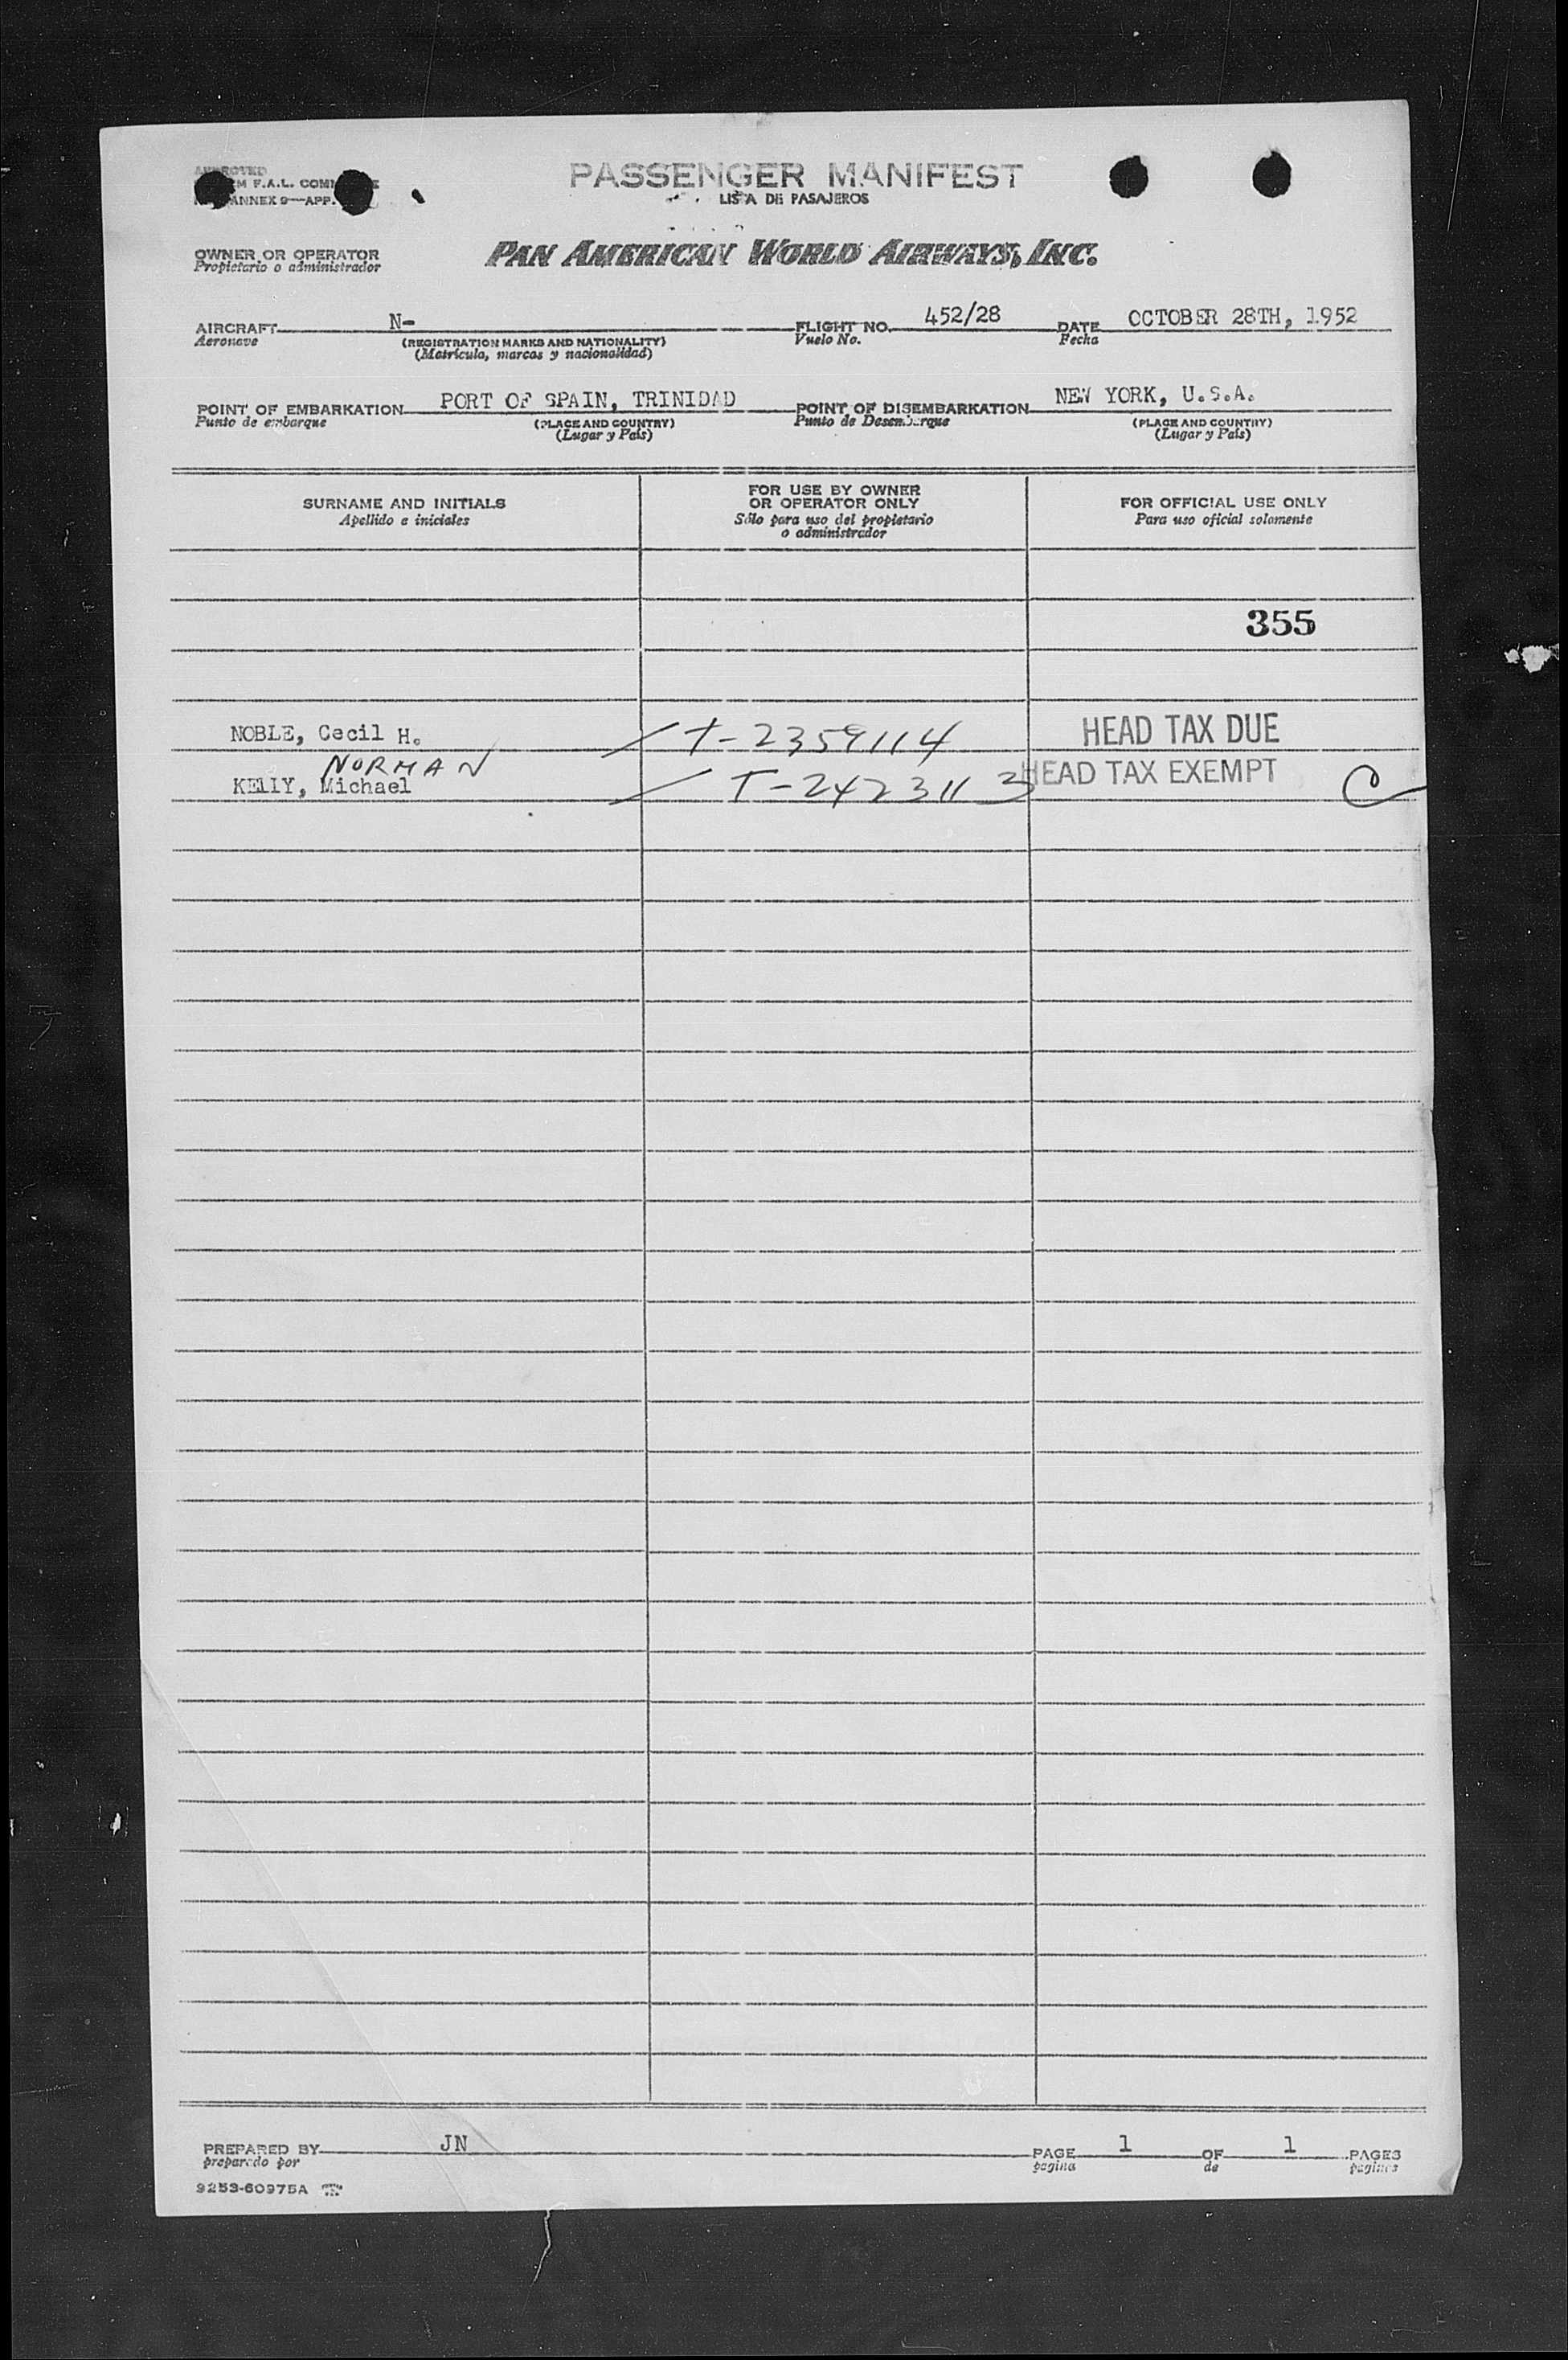 APPROVED
PASSENGER MANIFEST
F.A.L.
LISTA DE PASAJEROS
ANNEX 9—APP.
OWNER OR OPERATOR
Propietario o administrador
PAN AMERICAN WORLD AIRWAYS, INC.
AIRCRAFT N- FLIGHT NO. 452/28 DATE OCTOBER 28TH, 1952
Aeronave (REGISTRATION MARKS AND NATIONALITY) Vuelo No. Fecha
(Matrícula, marcas y nacionalidad)
POINT OF EMBARKATION PORT OF SPAIN, TRINIDAD POINT OF DISEMBARKATION NEW YORK, U.S.A.
Punto de embarque (PLACE AND COUNTRY) Punto de Desembarque (PLACE AND COUNTRY)
(Lugar y País) (Lugar y País)
SURNAME AND INITIALS
Apellido e iniciales
FOR USE BY OWNER
OR OPERATOR ONLY
Sólo para uso del propietario
o administrador
FOR OFFICIAL USE ONLY
Para uso oficial solamente
355
NOBLE, Cecil H. T-2359114 HEAD TAX DUE
NORMAN
KELLY, Michael T-2423113 HEAD TAX EXEMPT C
PREPARED BY JN PAGE 1 OF 1 PAGES
preparado por pagina de paginas
9253-60975A